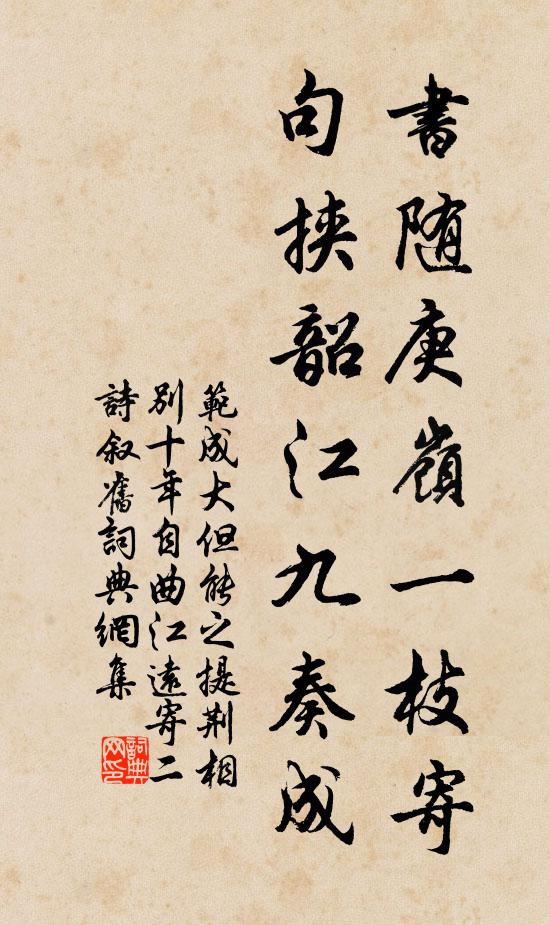 書随庚嶺一枝寄
句挾韶江九奏成
範成大但能之提荆相
別十年自曲江遠寄二
詩叙舊詞典網集
詞典网印